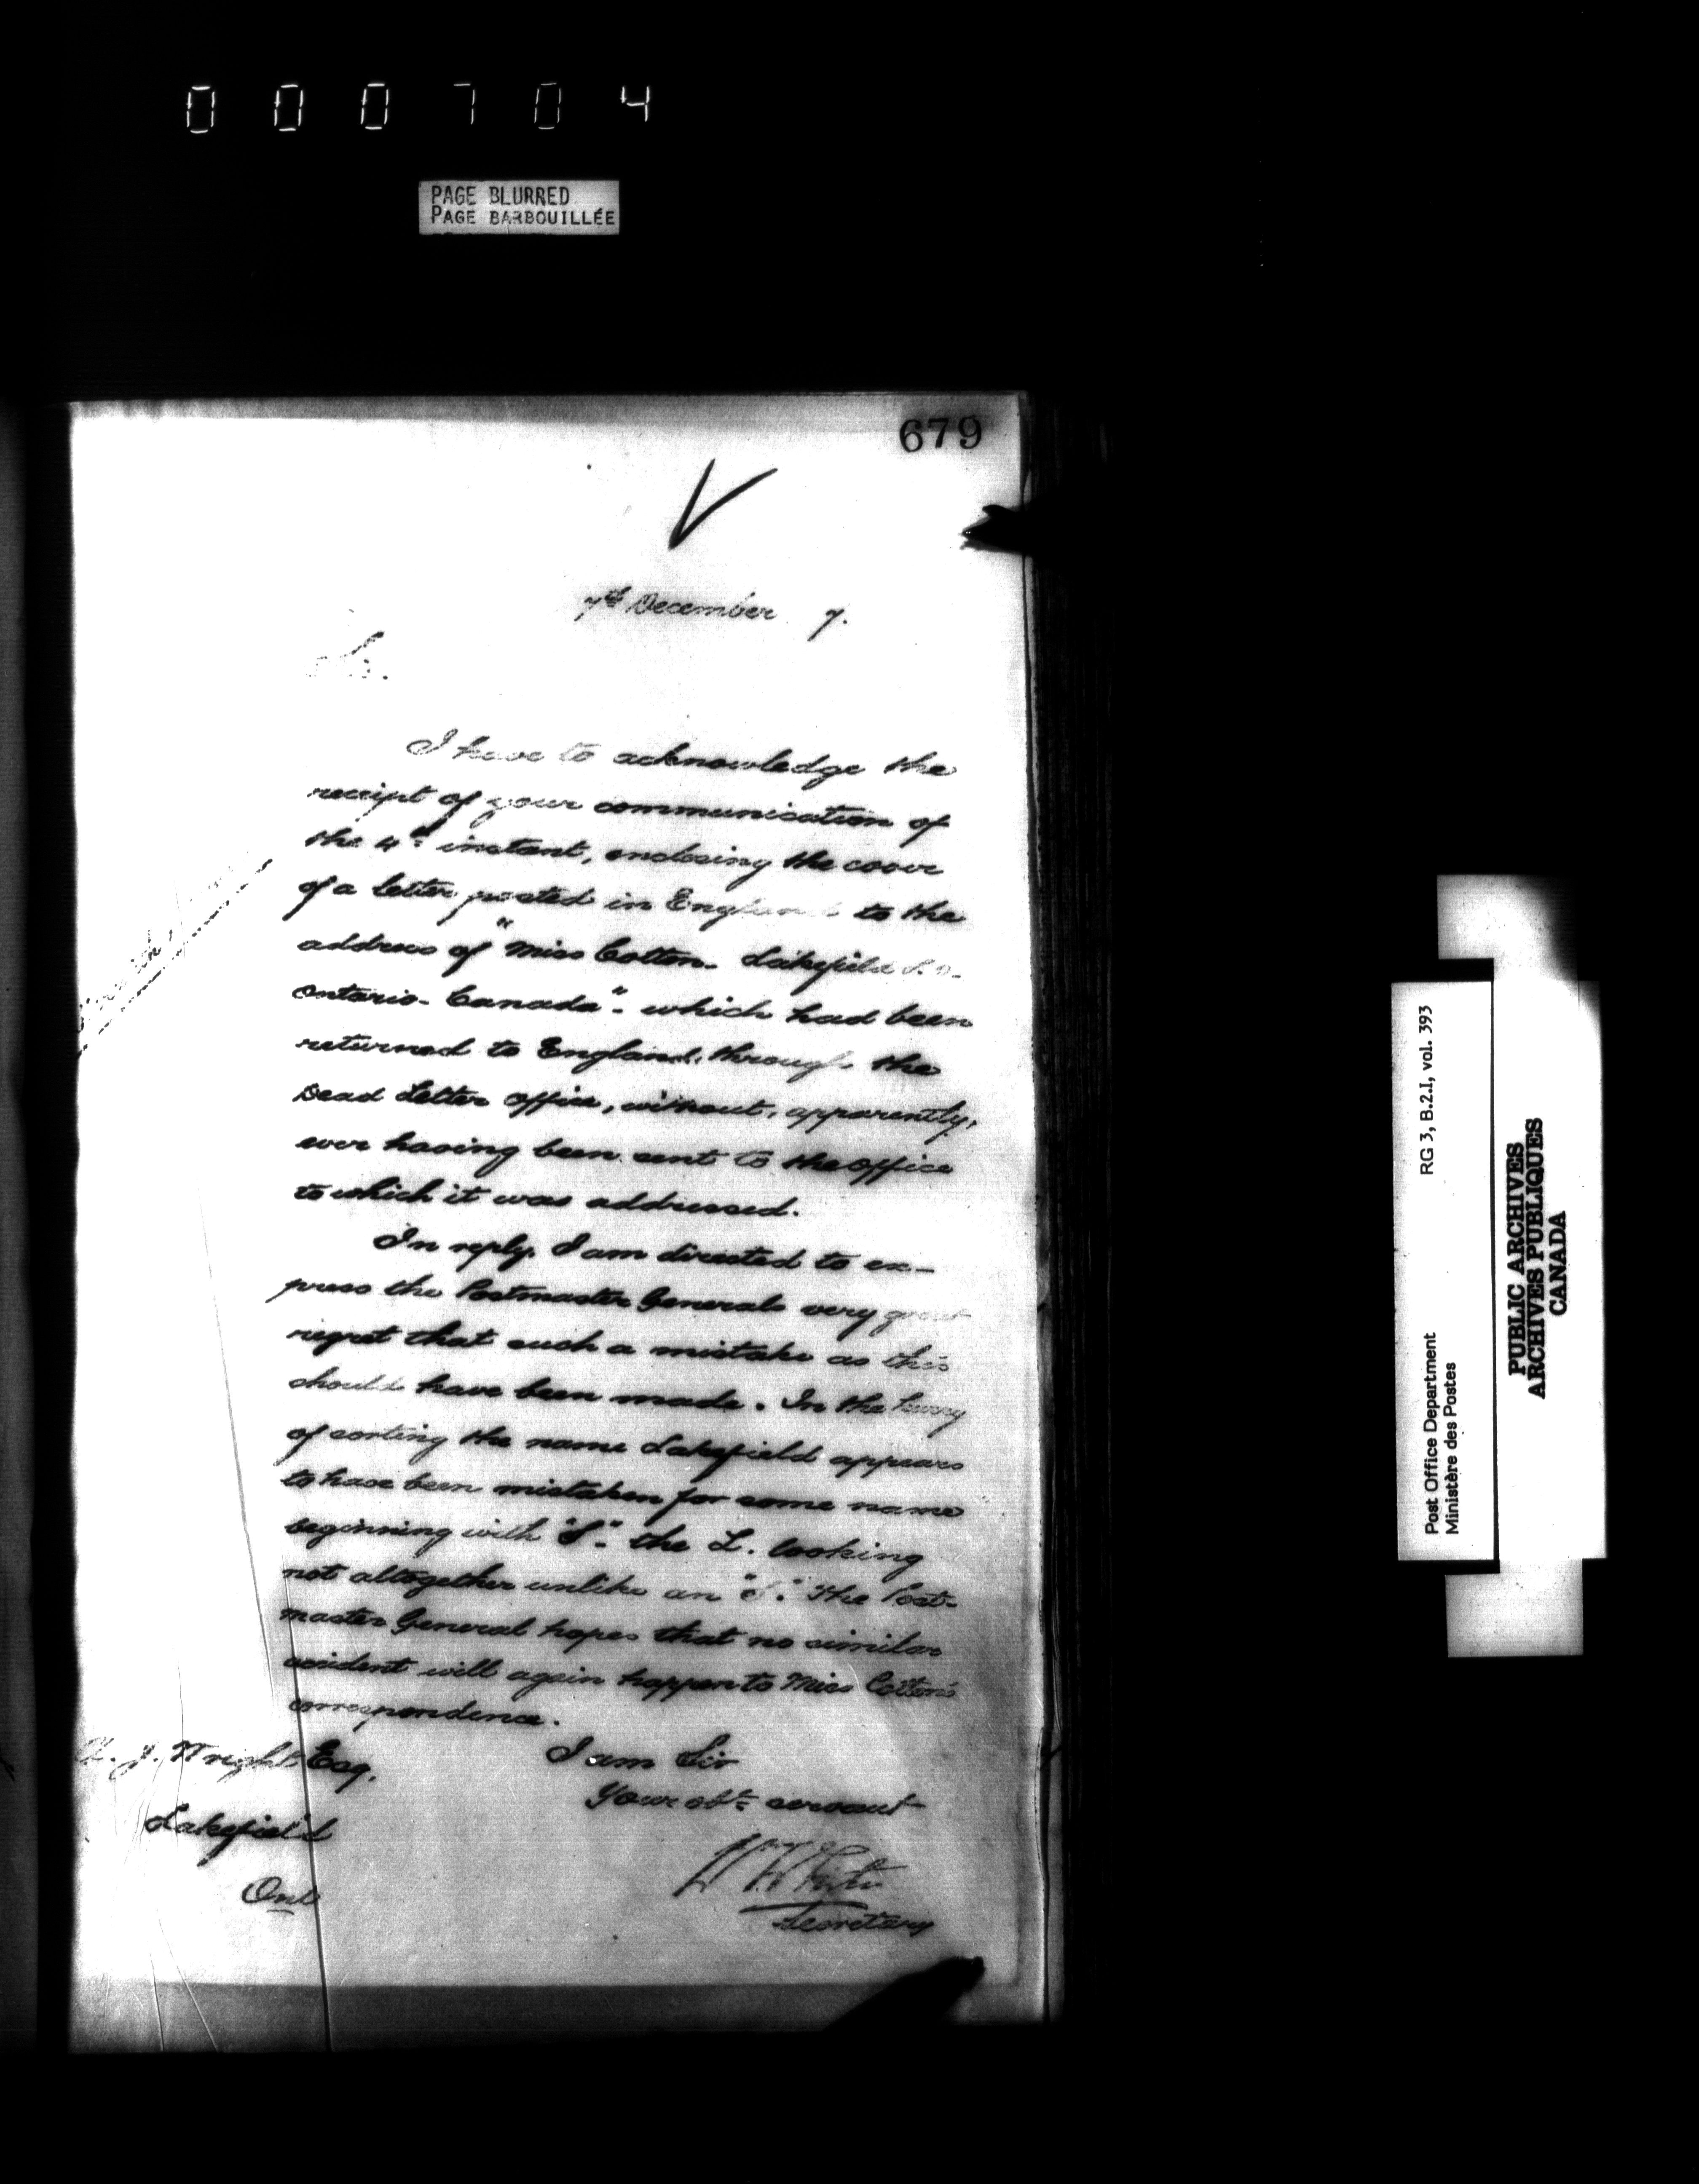 000704
PAGE BLURRED
PAGE BARBOUILLÉE
679
7th December 7.
Sir.
I have to acknowledge the
receipt of your communication of
the 4th instant, enclosing the cover
of a letter posted in England to the
address of "Miss Cotton. Lakefield P.O.
Ontario. Canada". which had been
returned to England, through the
Dead Letter Office, without, apparently,
ever having been sent to the office
to which it was addressed.
In reply, I am directed to ex-
press the Postmaster Generals very great
regret that such a mistake as this
should have been made. In the hurry
of sorting the name Lakefield appears
to have been mistaken for some name
beginning with "S". the L. looking
not altogether unlike an "S." The Post-
master General hopes that no similar
accident will again happen to Miss Cotton's
correspondence.
I am Sir
Your obt. servant
Secretary
J. Wright Esq.
Lakefield
Ont
Post Office Department
Ministère des Postes
RG 3, B.2.I, vol. 393
PUBLIC ARCHIVES
ARCHIVES PUBLIQUES
CANADA